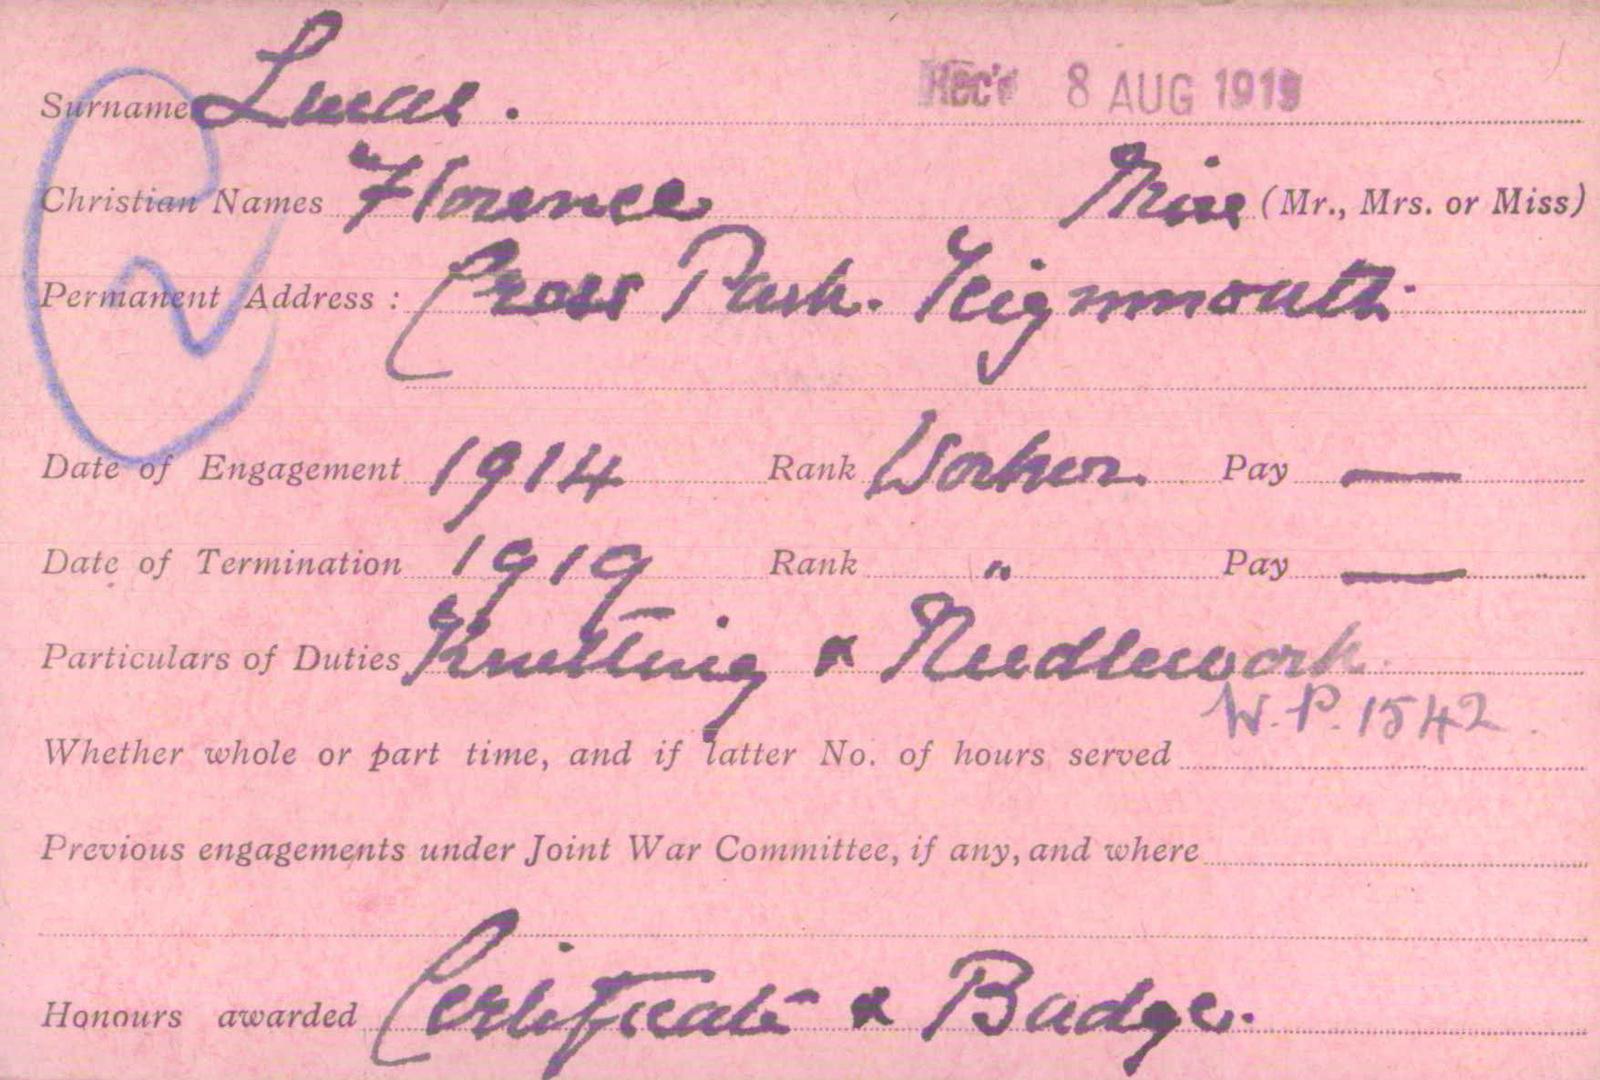 Rec'd 8 AUG 1919
Surname Lucas.
Christian Names Florence Miss (Mr., Mrs. or Miss)
Permanent Address: Cross Park. Teignmouth.
Date of Engagement 1914 Rank Worker Pay —
Date of Termination 1919 Rank " Pay —
Particulars of Duties Knitting & Needlework.
W.P. 1542.
Whether whole or part time, and if latter No. of hours served
Previous engagements under Joint War Committee, if any, and where
Honours awarded Certificate & Badge.